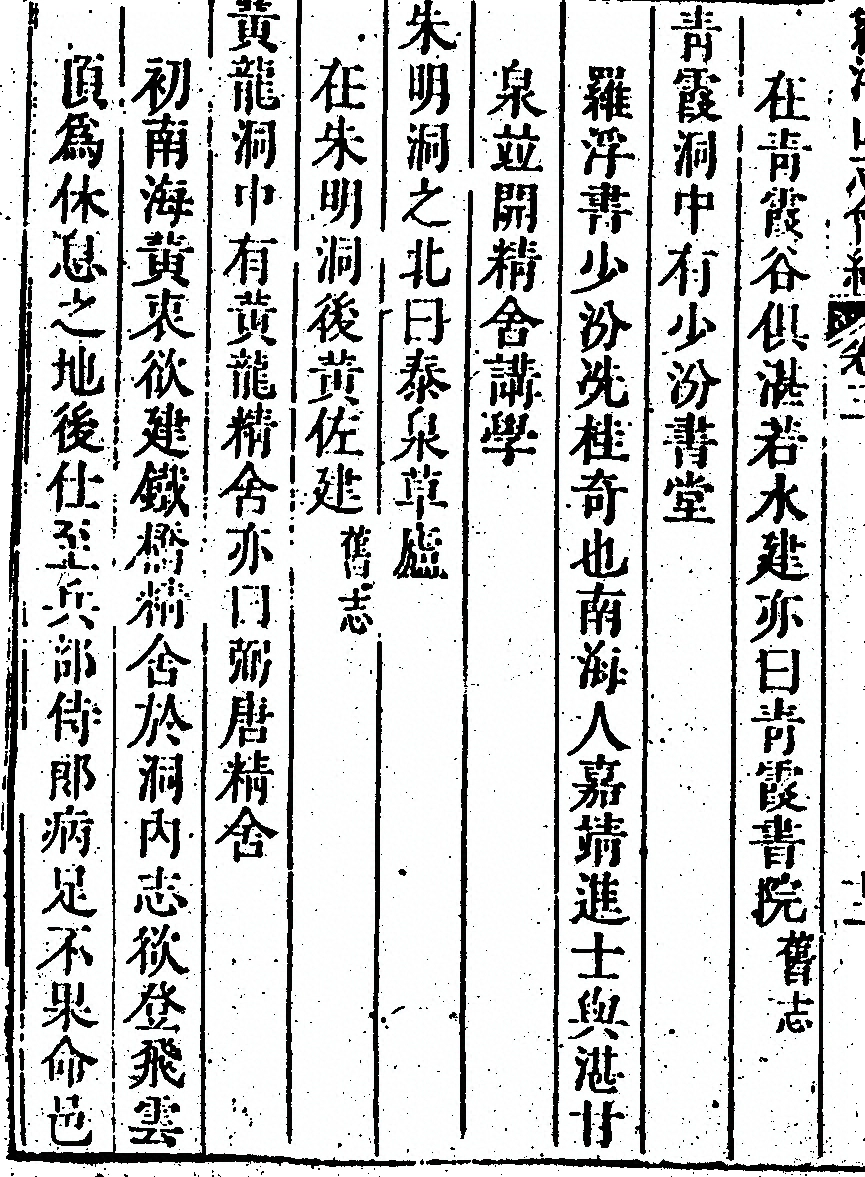 在青霞谷俱湛若水建亦曰青霞書院舊志
青霞洞中有少汾書堂
羅浮書少汾冼桂奇也南海人嘉靖進士與湛甘
泉並開精舍講學
朱明洞之北曰泰泉草廬
在朱明洞後黃佐建舊志
黃龍洞中有黃龍精舍亦曰弼唐精舍
初南海黃衷欲建鐵橋精舍於洞內志欲登飛雲
頂爲休息之地後仕至兵部侍郎病足不果命邑